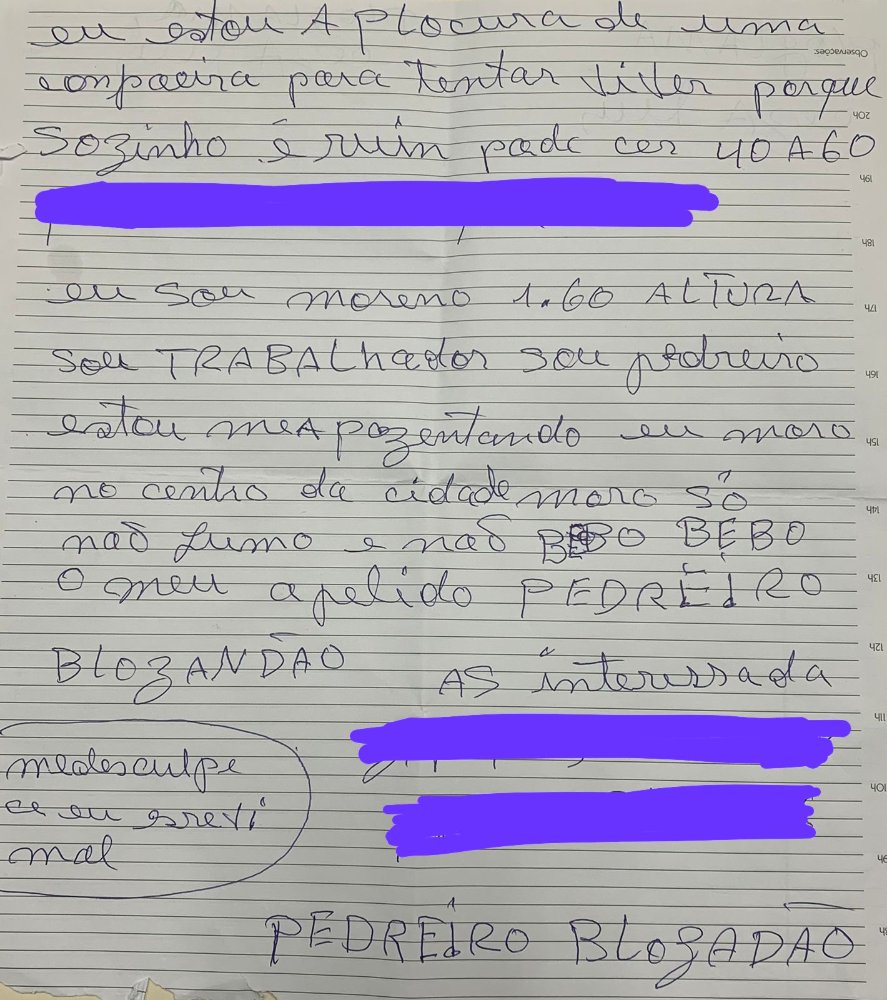 eu estou A PLocura de uma
conpaeira para tentar viver porque
Sozinho é ruim pode cer 40 A 60
eu sou moreno 1.60 ALTURA
sou TRABALhador sou pedreiro
estou me A pozentando eu moro
no centro da cidade moro só
não fumo e não BEBO BEBO
O meu apelido PEDREIRO
BLOZANDÃO
AS interessada
medesculpe
ce eu esrevi
mal
PEDREIRO BLOZADÃO
Observações:
20h
19h
18h
17h
16h
15h
14h
13h
12h
11h
10h
9h
8h